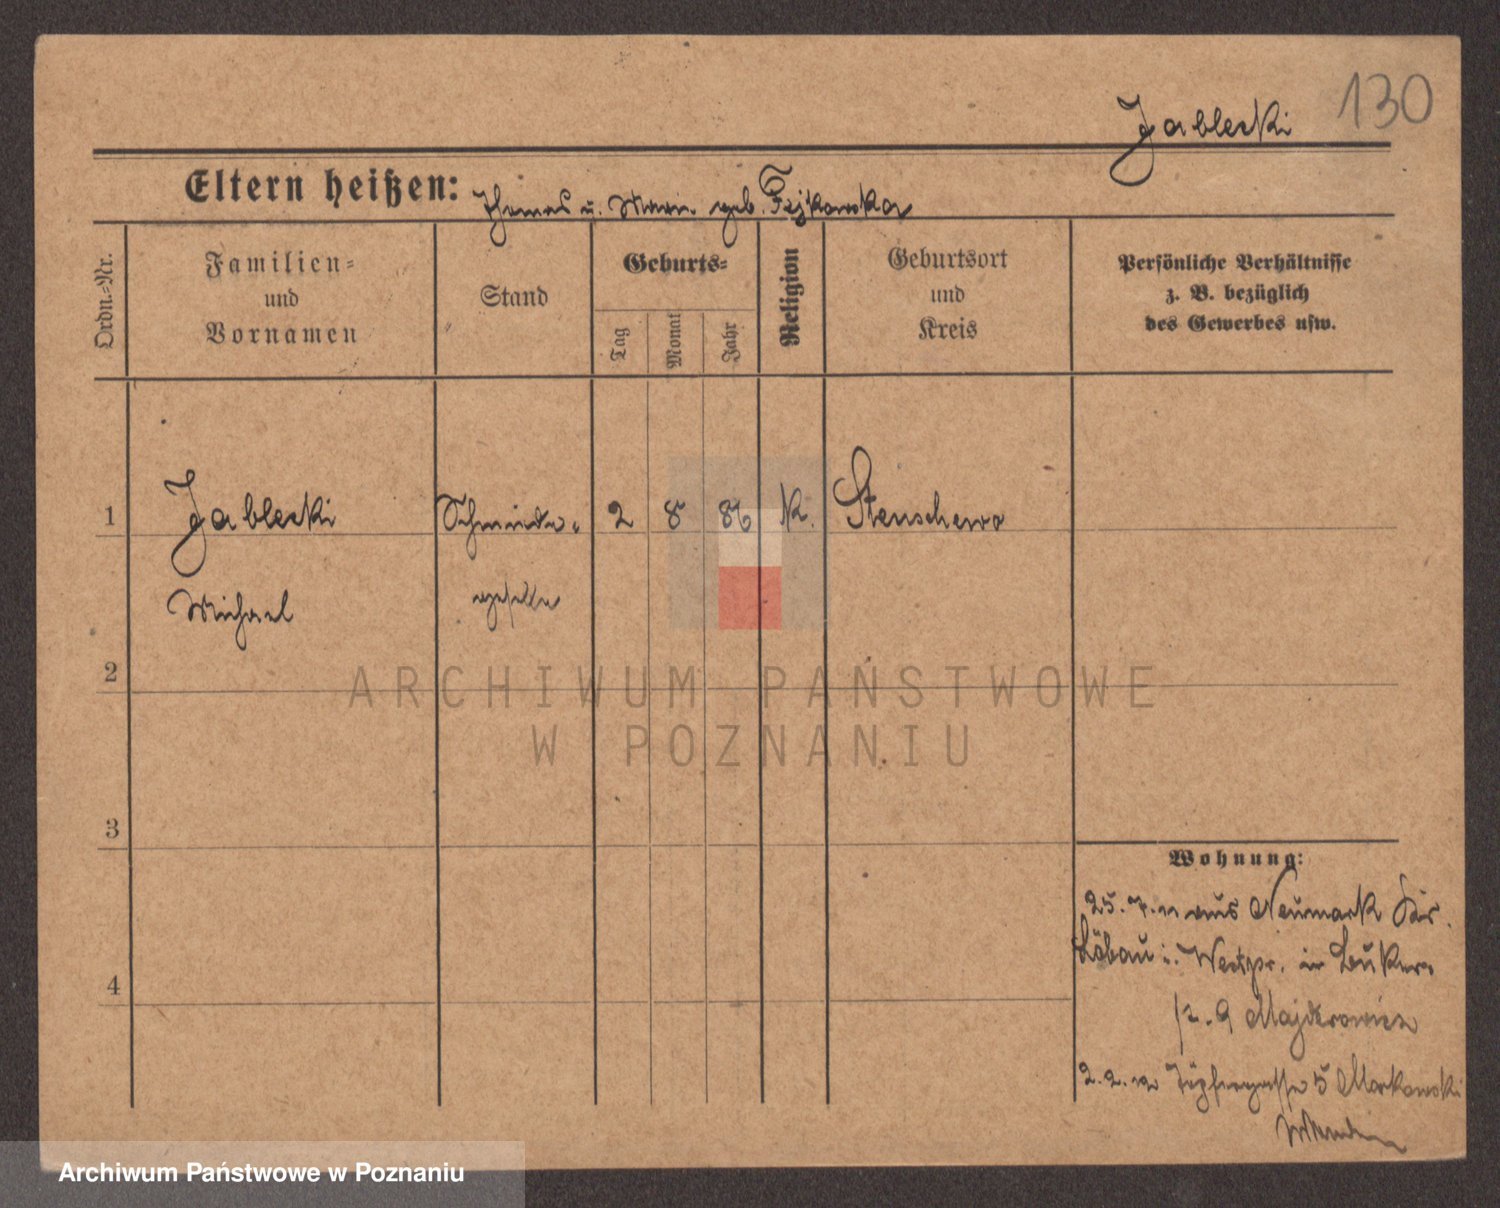 130
Jablecki
Eltern heißen: Thomas u. Marie geb. Fejkowska
Ordn.-Nr.
Familien-
und
Vornamen
Stand
Geburts-
Tag
Monat
Jahr
Religion
Geburtsort
und
Kreis
Persönliche Verhältnisse
z. B. bezüglich
des Gewerbes usw.
1 Jablecki Schmiede- 2 8 86 K. Stenschewo
Michael geselle
2
3
4
Wohnung:
25. 7. 11 aus Neumark Kr.
Löbau i. Westpr. in
9
2. 2. 12 Töpfergasse 5 Markowski
ARCHIWUM PAŃSTWOWE
W POZNANIU
Archiwum Państwowe w Poznaniu